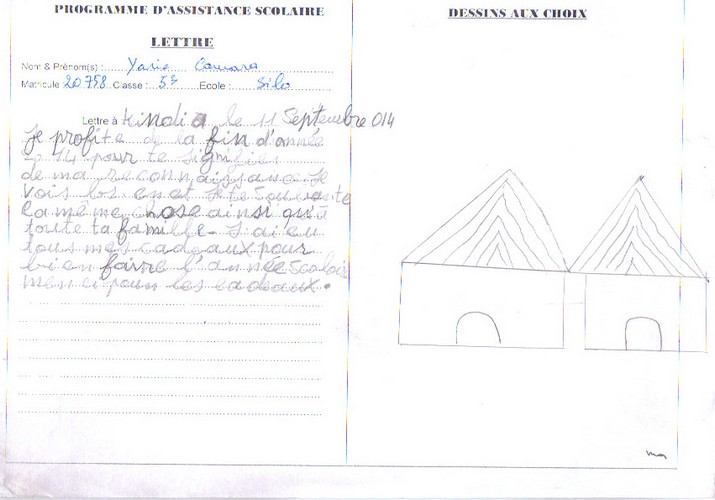 PROGRAMME D'ASSISTANCE SCOLAIRE
LETTRE
Nom & Prénom(s) : Yarie Camara
Matricule 20758 Classe : 5è Ecole : Silo
Lettre à Kindia le 11 Septembre 014
Je profite de la fin d'année
2014 pour te signifier
de ma reconnaissance Je
vois bs en et Je te souvete
la même chose ainsi qu'à
toute ta famille - J'ai eu
tous mes cadeaux pour
bien faire l'année Scolair
menci poun les cadeaux.
DESSINS AUX CHOIX